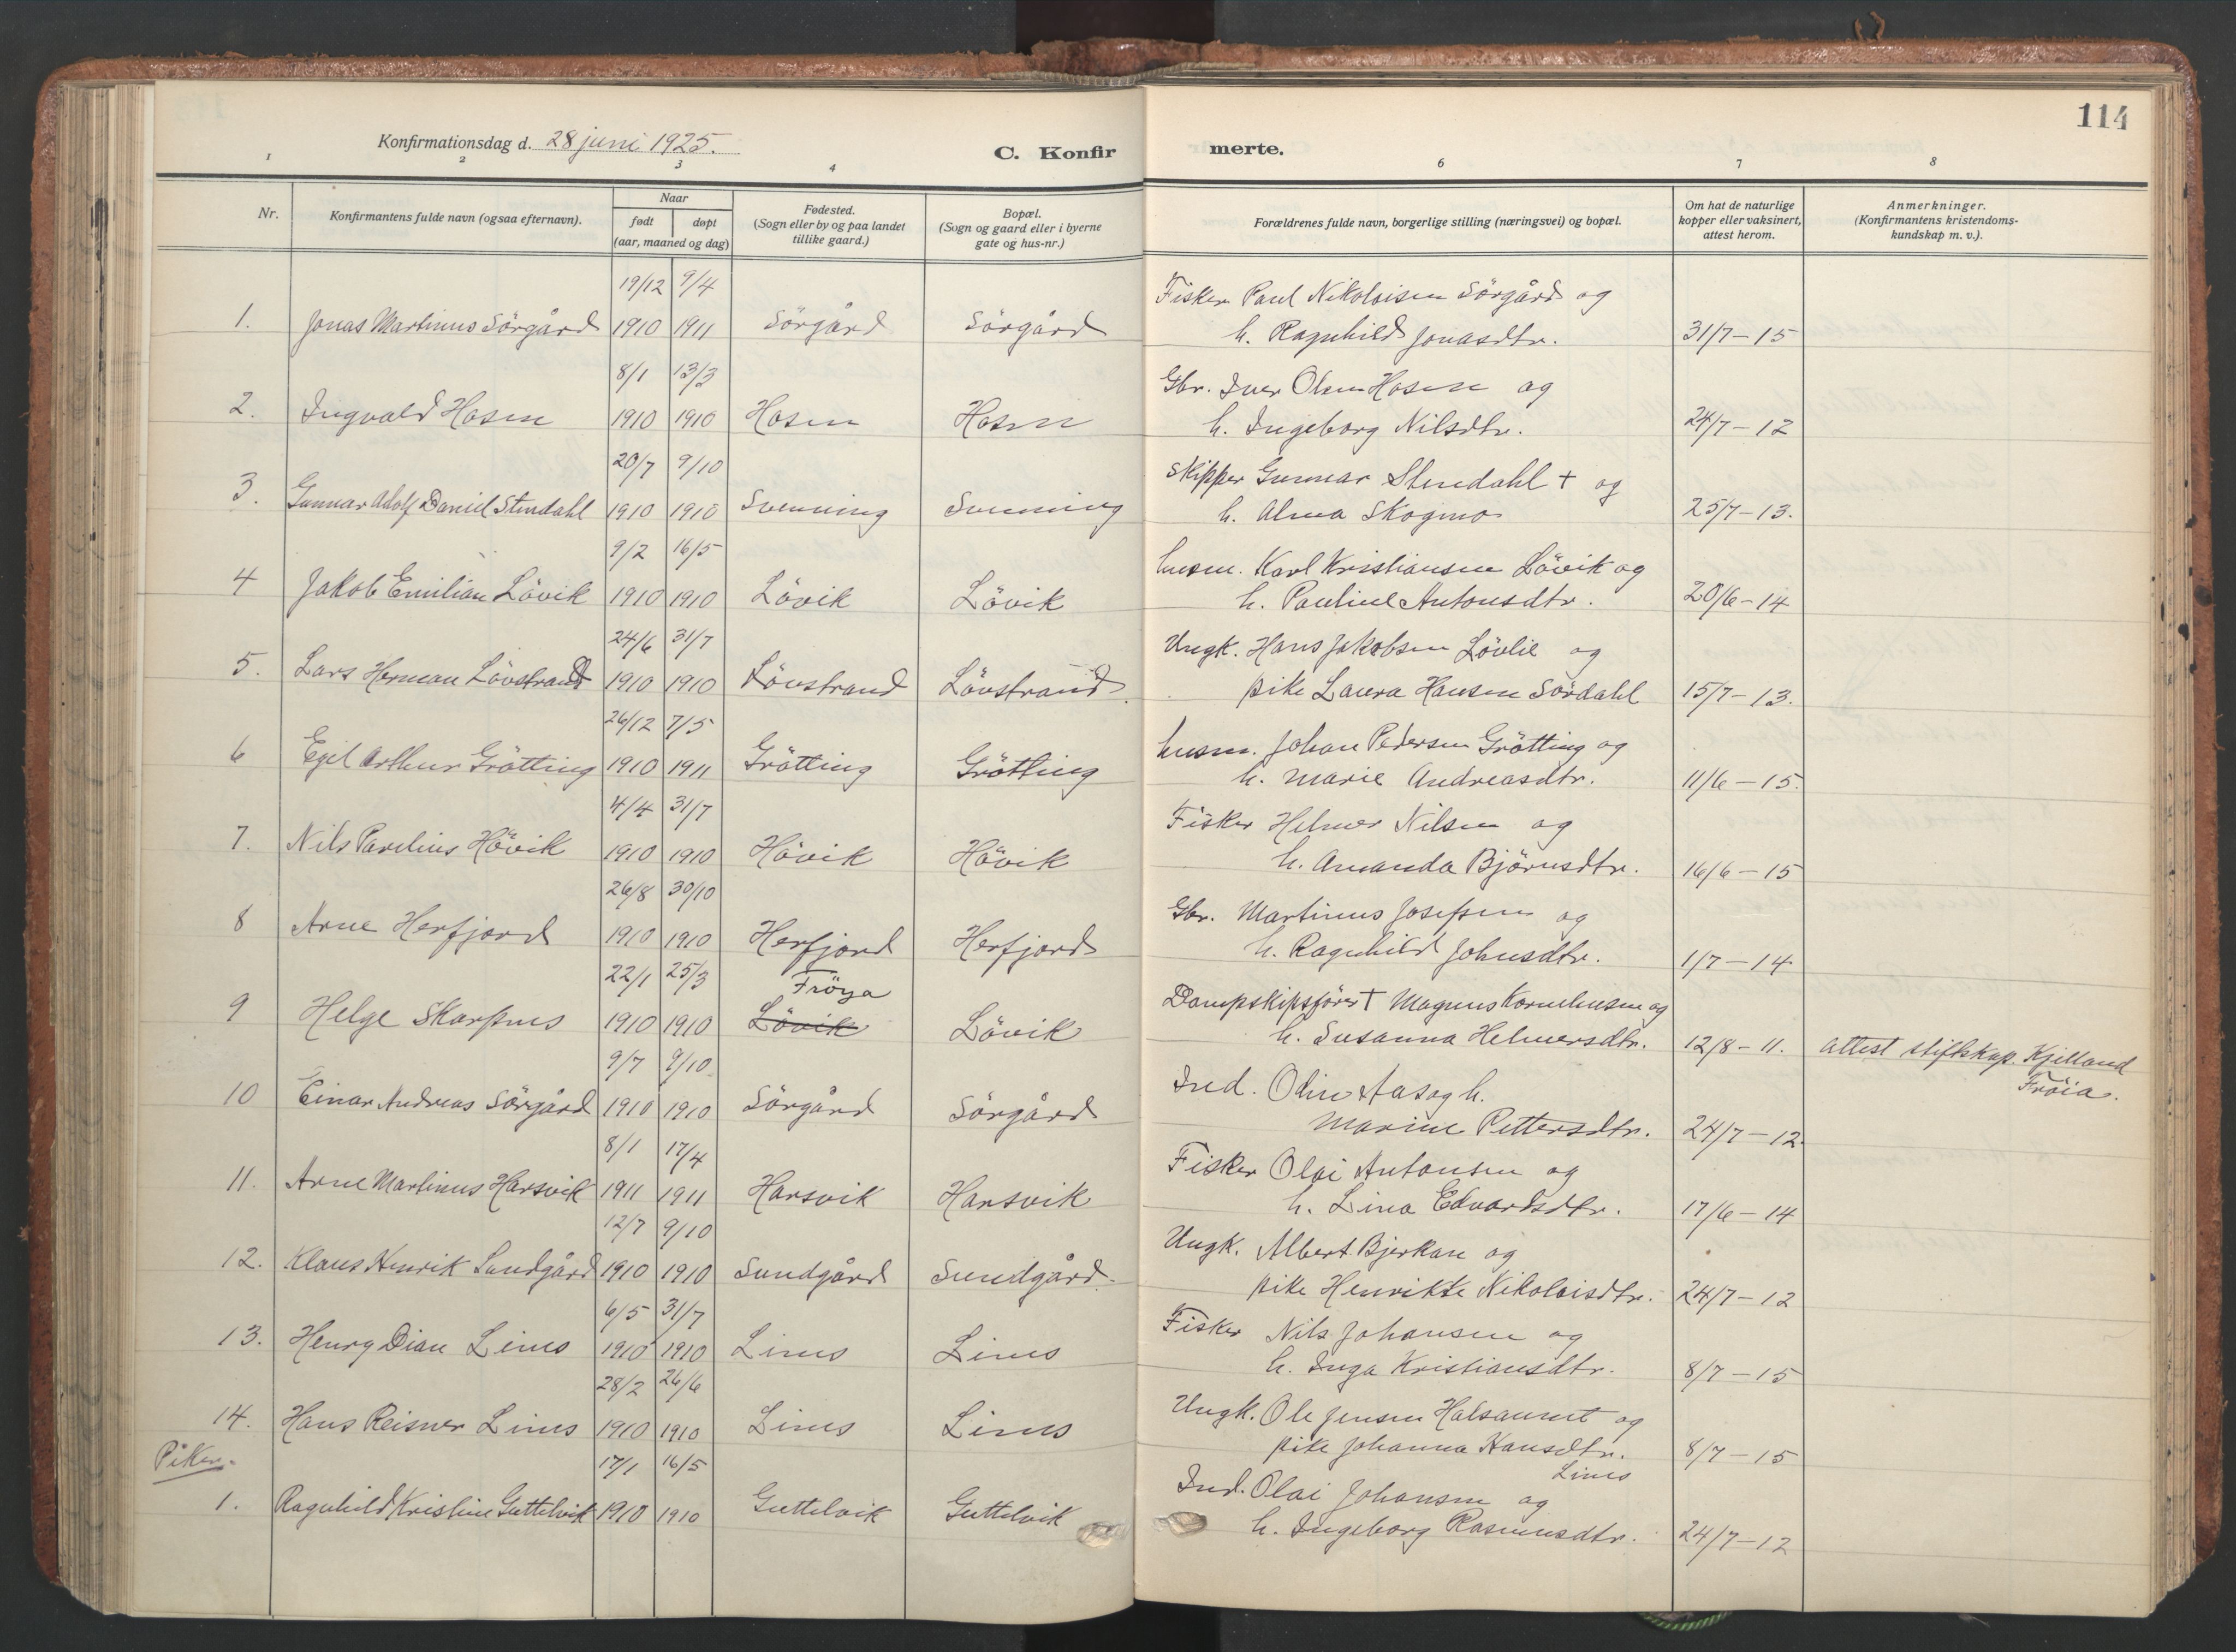 114
Konfirmationsdag d. 28 juni 1925.
C. Konfirmerte.
1 2 3 4 6 7 8
Nr.
Konfirmantens fulde navn (ogsaa efternavn).
Naar
født
døpt
(aar, maaned og dag)
Fødested.
(Sogn eller by og paa landet
tillike gaard.)
Bopæl.
(Sogn og gaard eller i byerne
gate og hus-nr.)
Forældrenes fulde navn, borgerlige stilling (næringsvei) og bopæl.
Om hat de naturlige
kopper eller vaksinert,
attest herom.
Anmerkninger.
(Konfirmantens kristendoms-
kundskap m. v.).
19/12 9/4 Fisker Paul Nikolaisen Sörgård og
1. Jonas Martinus Sörgård 1910 1911 Sörgård Sörgård h. Ragnhild Jonasdtr. 31/7 - 15
8/1 13/3 Gbr. Iver Olsen Hosen og
2. Ingvald Hosen 1910 1910 Hosen Hosen h. Ingeborg Nilsdtr. 24/7 - 12
20/7 9/10 Skipper Gunnar Stendahl + og
3. Gunnar Adolf Daniel Stendahl 1910 1910 Svenning Svenning h. Alma Skogmo 25/7 - 13.
9/2 16/5 husm. Karl Kristiansen Lövik og
4 Jakob Emilian Lövik 1910 1910 Lövik Lövik h. Pauline Antonsdtr. 20/6 - 14
24/6 31/7 Ungk. Hans Jakobsen Lövlie og
5. Lars Herman Lövstrand 1910 1910 Lövstrand Lövstrand pike Laura Hansen Sördahl 15/7 - 13.
26/12 7/5 husm. Johan Pedersen Grötting og
6 Egil Arthur Grötting 1910 1911 Grötting Grötting h. Marie Andreasdtr. 11/6 - 15.
4/4 31/7 Fisker Helmer Nilsen og
7. Nils Parelius Hövik 1910 1910 Hövik Hövik h. Amanda Björnsdtr. 16/6 - 15
26/8 30/10 Gbr. Martinus Josefsen og
8 Arne Herfjord 1910 1910 Herfjord Herfjord h. Ragnhild Johnsdtr. 1/7 - 14
22/1 25/3 Fröya Dampskipsförer + Magnus Korneliusen og
9 Helge Skarpnes 1910 1910 Lövik Lövik h. Susanna Helmersdtr. 12/8 - 11. attest stiftskap. Kjelland
Fröia.
9/7 9/10 Ind. Odin Aas og h.
10 Einar Andreas Sörgård 1910 1910 Sörgård Sörgård Marine Pettersdtr. 24/7 - 12
8/1 17/4 Fisker Olai Antonsen og
11. Arne Martinus Harsvik 1911 1911 Harsvik Harsvik h. Lina Edvardsdtr. 17/6 - 14
12/7 9/10 Ungk. Albert Bjerkan og
12. Klaus Henrik Sundgård 1910 1910 Sundgård Sundgård. pike Henrikke Nikolaisdtr. 24/7 - 12
6/5 31/7 Fisker Nils Johansen og
13. Henry Dian Lines 1910 1910 Lines Lines h. Inga Kristiansdtr. 8/7 - 15
28/2 26/6 Ungk. Ole Jensen Halsaunet og
14. Hans Reisner Lines 1910 1910 Lines Lines pike Johanna Hansdtr. 8/7 - 15
Lines
Piker.
17/1 16/5 Ind. Olai Johansen og
1. Ragnhild Kristine Guttelvik 1910 1910 Guttelvik Guttelvik h. Ingeborg Rasmusdtr. 24/7 - 12